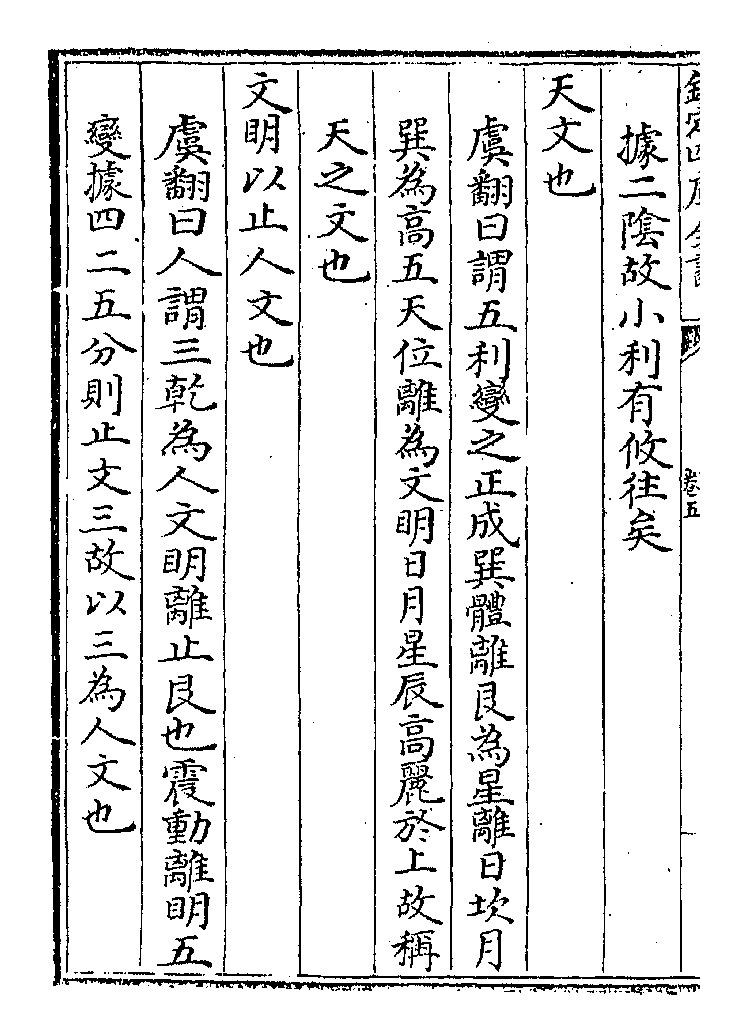 欽定四庫全書 卷五
據二陰故小利有攸往矣
天文也
虞翻曰謂五利變之正成巽體離艮為星離日坎月
巽為高五天位離為文明日月星辰高麗於上故稱
天之文也
文明以止人文也
虞翻曰人謂三乾為人文明離止艮也震動離明五
變據四二五分則止文三故以三為人文也